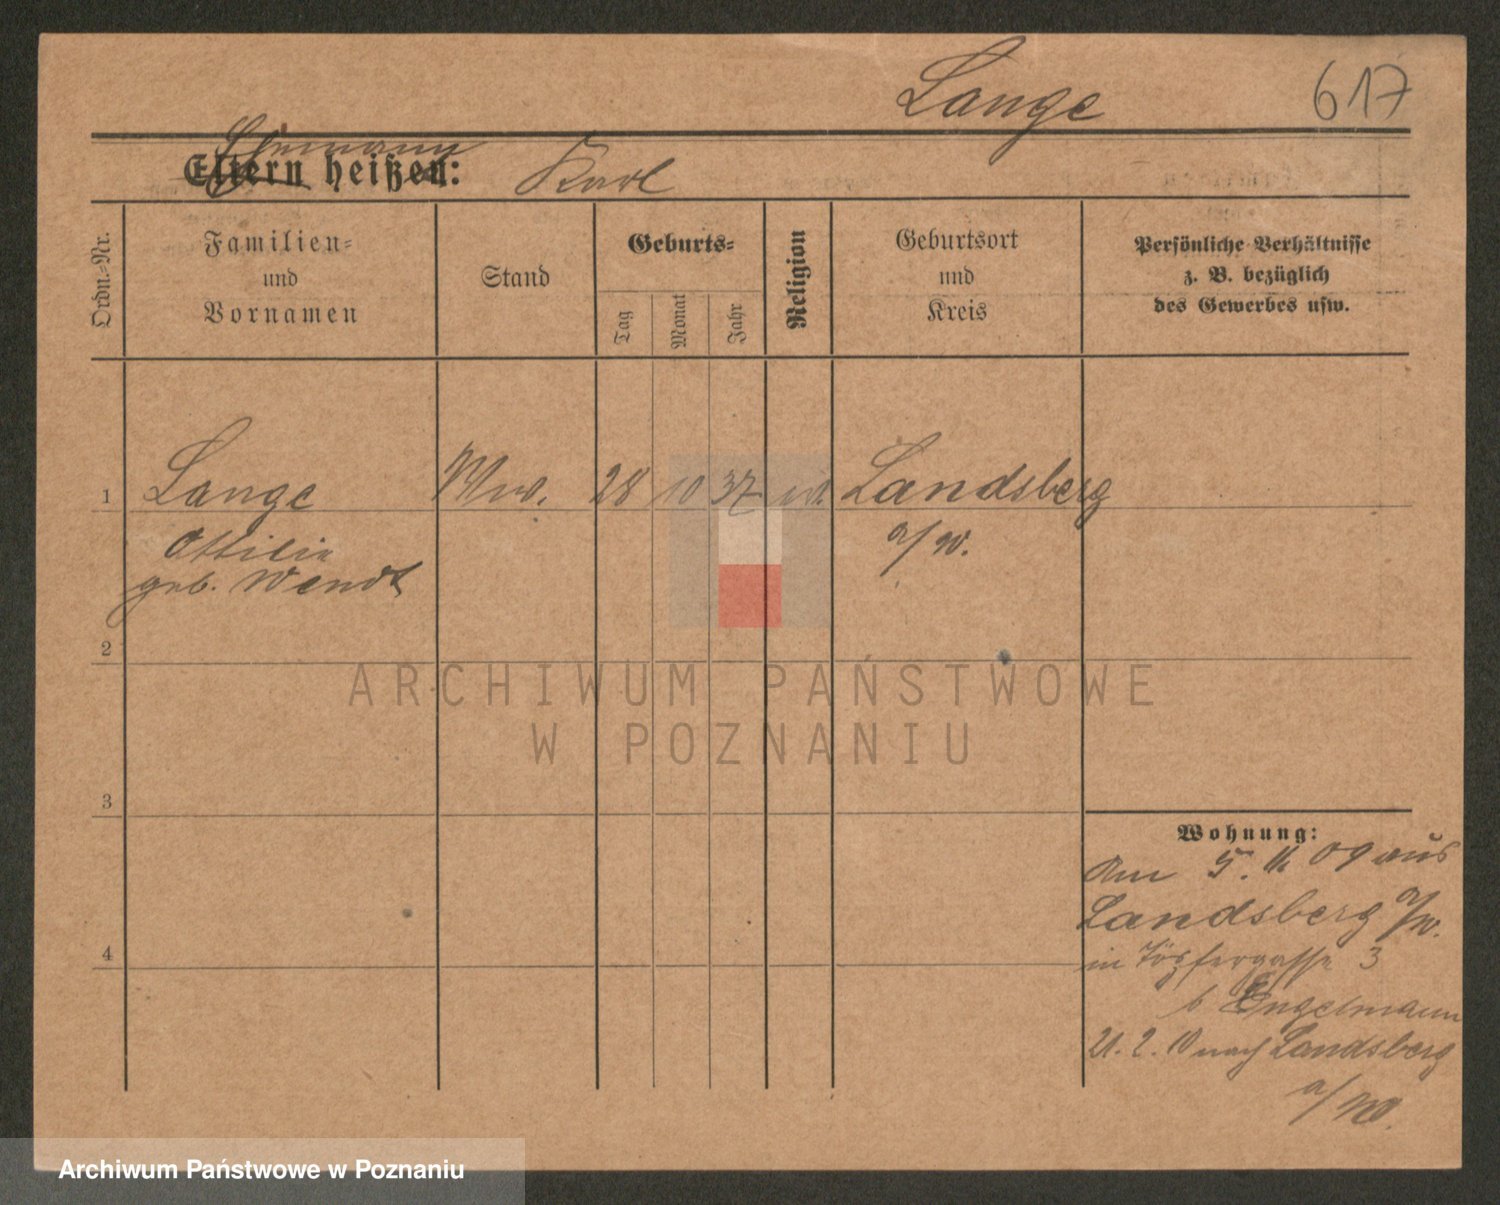 Lange 617
Ehemann
Eltern heißen: Karl
Ordn.-Nr.
Familien-
und
Vornamen
Stand
Geburts-
Tag
Monat
Jahr
Religion
Geburtsort
und
Kreis
Persönliche Verhältnisse
z. B. bezüglich
des Gewerbes usw.
1 Lange Ww. 28 10 37 Landsberg
Ottilie a/W.
geb. Wendt
2
3
4
Wohnung:
Am 5. 11 09 aus
Landsberg a/W.
in Töpfergasse 3
b Engelmann
21. 2. 10 nach Landsberg
a/W.
ARCHIWUM PAŃSTWOWE
W POZNANIU
Archiwum Państwowe w Poznaniu